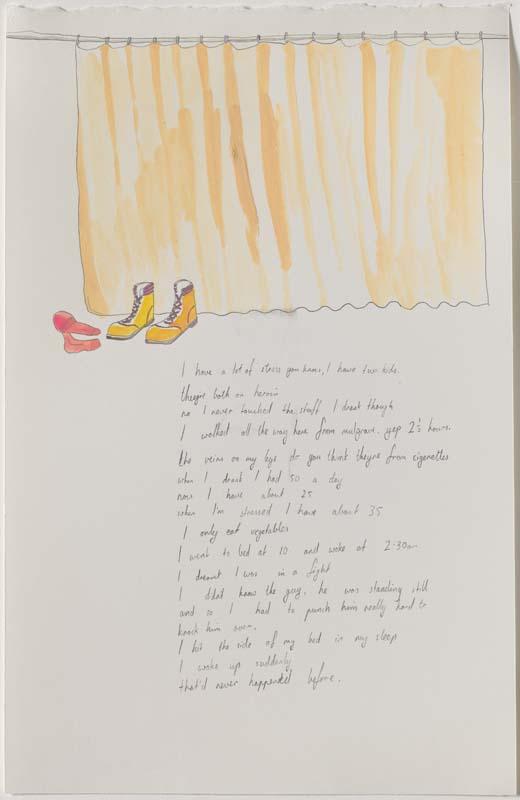 I have a lot of stress you know, I have two kids.
they're both on heroin
no I never touched the stuff I drank though
I walked all the way here from mulgrave. yep 2½ hours.
the veins on my legs do you think theyre from cigarettes
when I drank I had 50 a day
now I have about 25
when I'm stressed I have about 35
I only eat vegetables
I went to bed at 10 and woke at 2.30am
I dreamt I was in a fight
I didnt know the guy. he was standing still
and so I had to punch him really hard to
knock him over.
I hit the side of my bed in my sleep
I woke up suddenly
that'd never happened before.